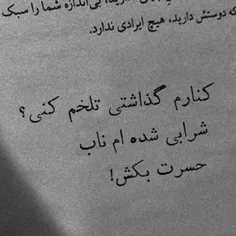 بی‌اندازه شما را سبک
که دوستش دارید، هیچ ایرادی ندارد.
کنارم گذاشتی تلخم کنی؟
شرابی شده ام ناب
حسرت بکش!